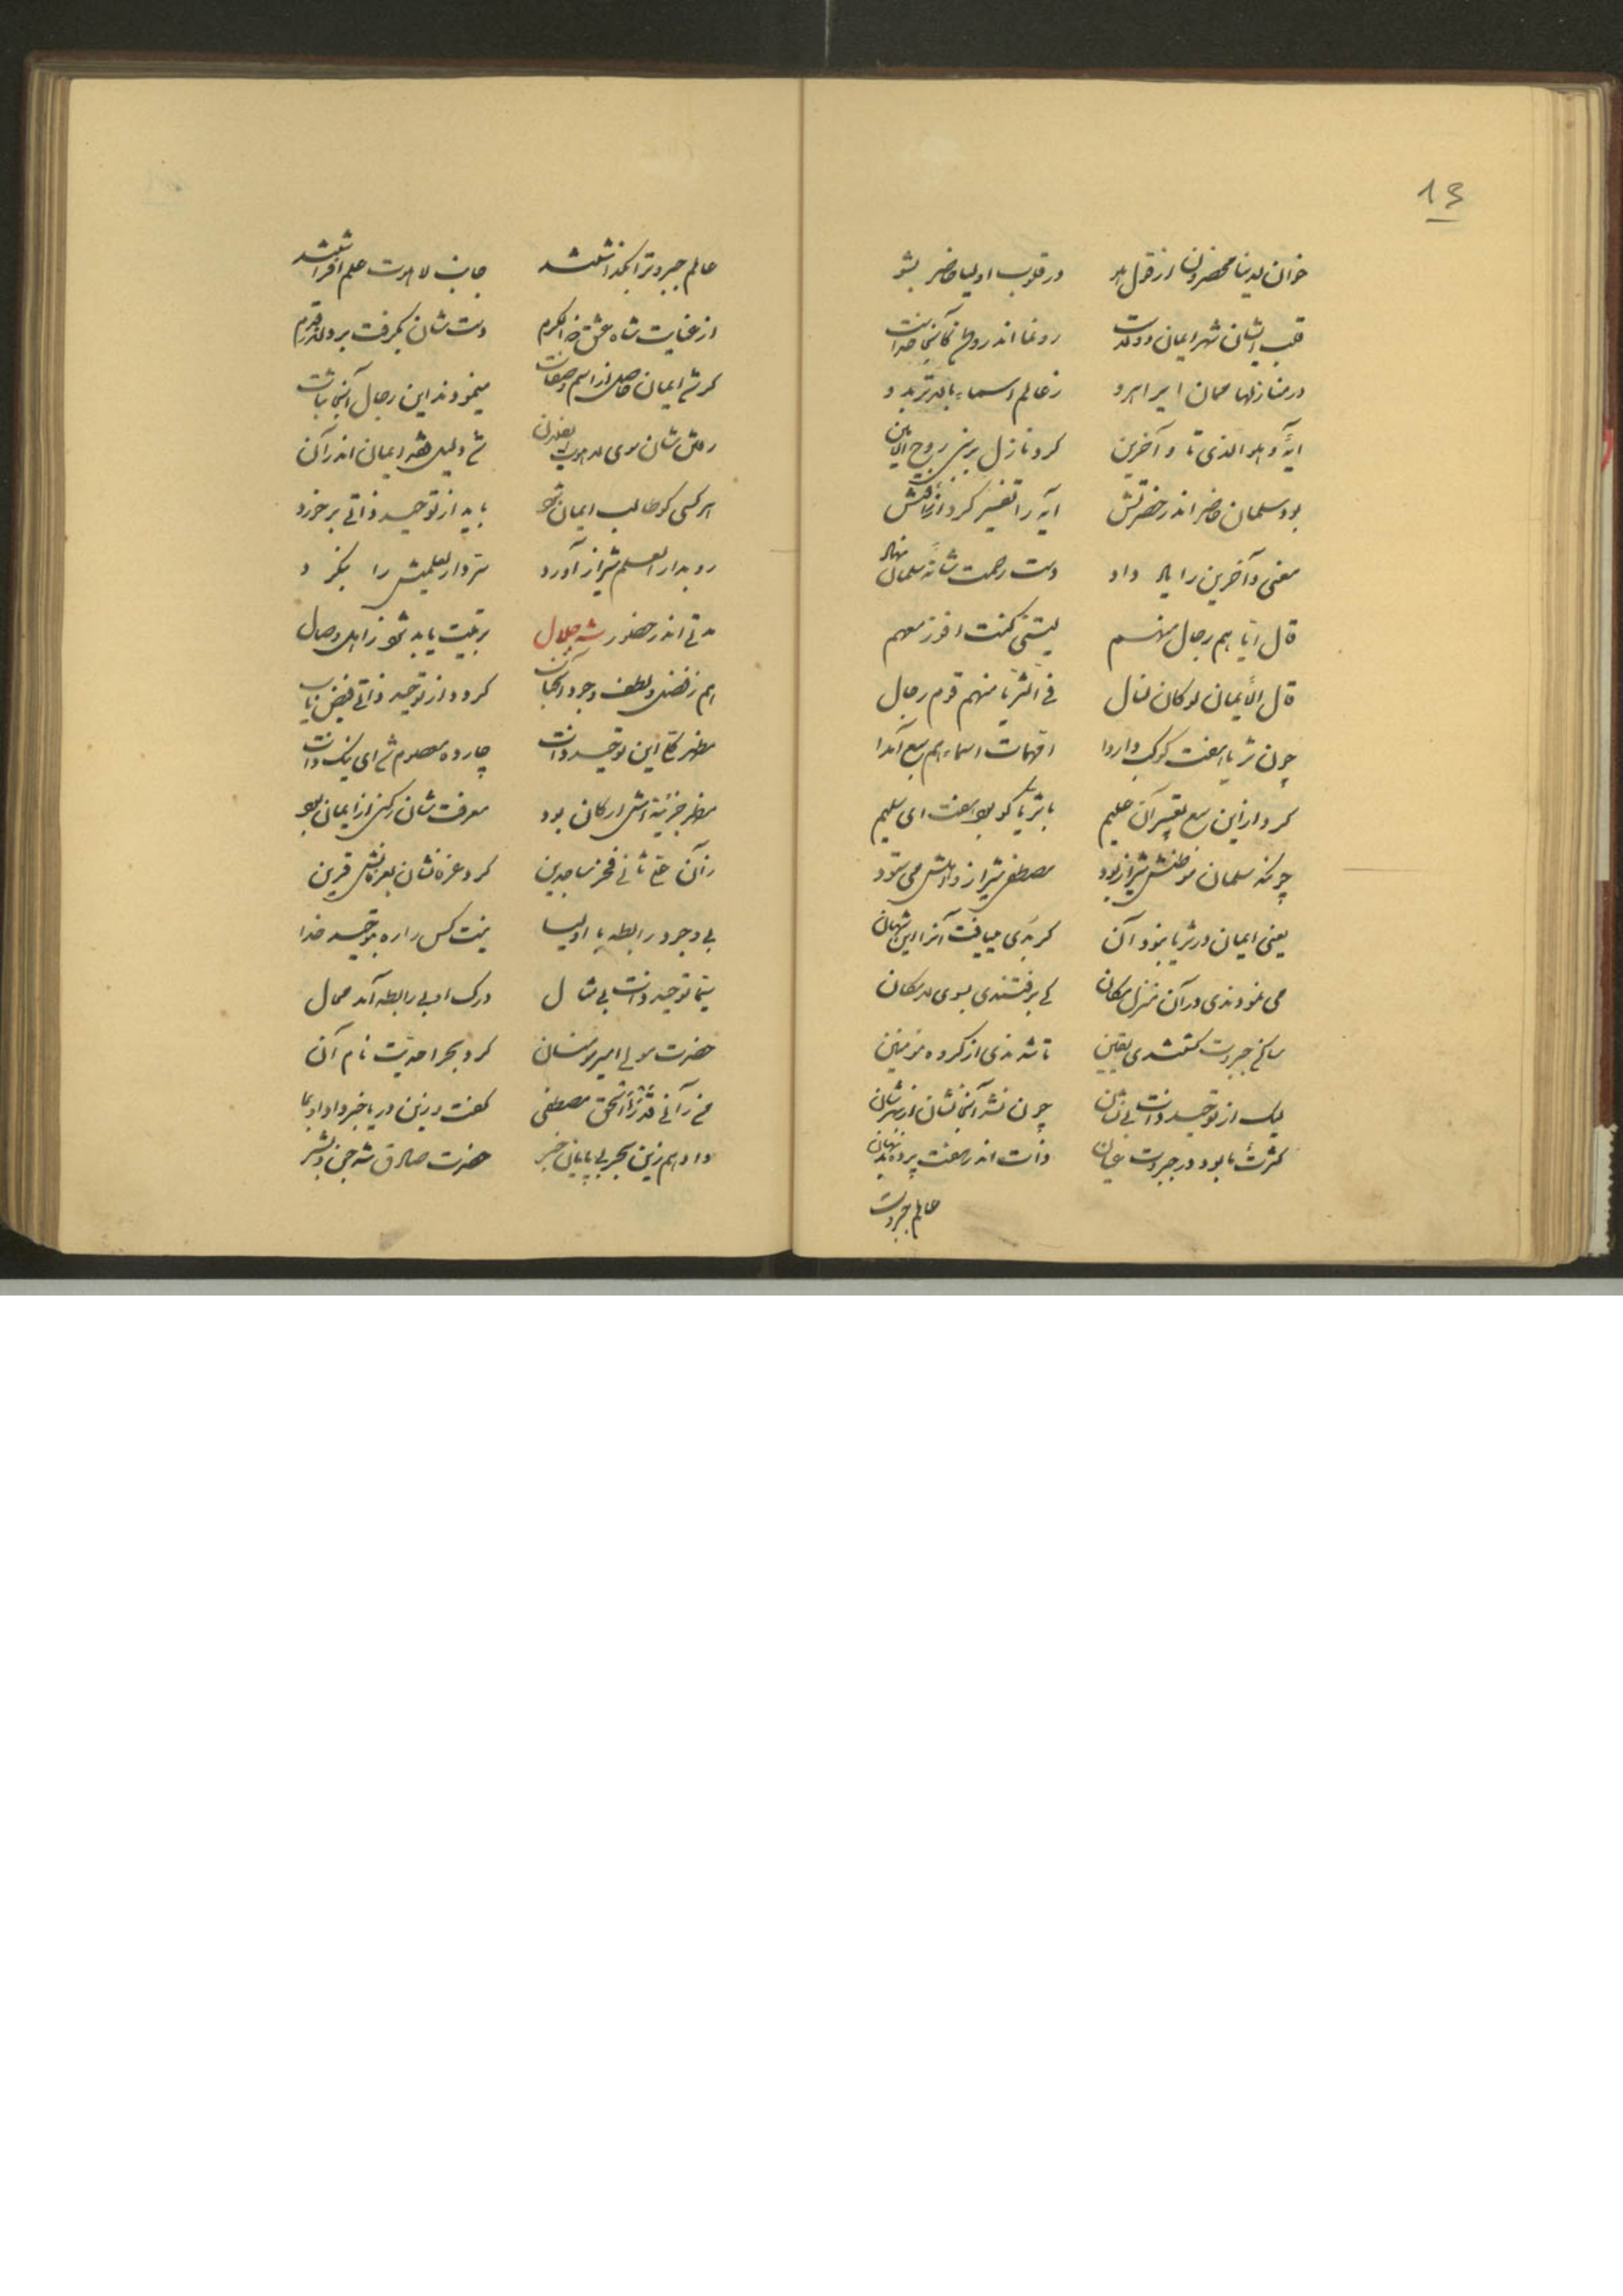 13
خوان لدینا محضرون از قول هو در قلوب اولیا حاضر بشو
قلب ایشان شهر ایمان و ولاست رو نما اندر و کآنجا خداست
در منازلها ممان ایراهرو ز عالم اسماء بالاتر برو
آیهٔ هو الذی تا و آخرین کرد نازل بر نبی روح الامین
بود سلمان حاضر اندر حضرتش آیه را تفسیر کرد از رافتش
معنی و آخرین را یاد داد دست رحمت شانهٔ سلمان نهاد
قال ایا هم رجال منهم لیتنی کنت افوز معهم
قال الأیمان لو کان لنال فی الثریا منهم قوم رجال
چون ثریا هفت کوکب دار دا امّهات اسماء هم سبع آمدا
کرد از این سبع تعبیر آن علیم با ثریا کو بود هفت ای سلیم
چونکه سلمان موطنش شیراز بود مصطفی شیراز و اهلش می ستود
یعنی ایمان در ثریا بود آن کر بدی مییافت آنرا این شهان
می نمودندی در آن منزل مکان کی برفتندی بسوی لامکان
ساکن جبروت کشتندی یقین تا شدندی از کروه مؤمنین
لیک از توحید ذات بی نشان چون نشد آنجا نشان از بهرشان
کثرت تا بود در جبروت عیان ذات اندر هفت پرده بد نهان
عالم جبروت
عالم جبروت را بگذاشتند جانب لاهوت علم افراشتند
از عنایت شاه عشق ذو الکرم دست شان بگرفت برد اندر قدم
کر شد ایمان حاصل از اسم و صفات مینمودند این رجال آنجا ثبات
رفتن شان سوی لاهوت شد دلیل شهر ایمان اندر آن
هر کسی کو طالب ایمان شود باید از توحید ذاتی بر خورد
رو بدار العلم شیراز آورد سر دار العلمیش را بنکرد
مدتی اندر حضور شه جلال تربیت یابد شود ز اهل وصال
هم ز فضل و لطف و جود آنجناب کردد از توحید ذاتی فیض یاب
مظهر کلی این توحید ذات چارده معصوم شد ای نیک ذات
مظهر جزئیه اش ارکان بود معرفت شان رکنی از ایمان بود
زآن علی ثانی فخر ساجدین کرد عرفانشان بعرفانش قرین
بی وجود رابطه با اولیا نیست کس را ره بتوحید خدا
سیّما توحید ذات بی مثال درک او بی رابطه آمد محال
حضرت مولی امیر مؤمنان کرد بحر احدیّت نام آن
من رآنی قد رأی الحق مصطفی کفت و زین دریا خبر داد او بما
داد هم زین بحر بی پایان خبر حضرت صادق شه جن و بشر